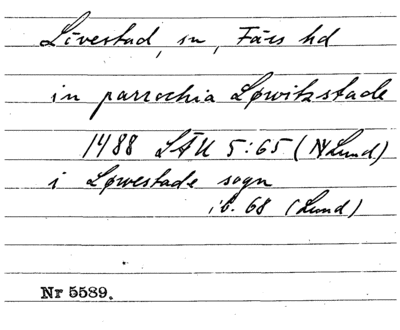 Lövestad, sn, Färs hd
in parrochia Løwitzstade
1488 LÄU 5:65 (Lund)
i Løwestade sogn
ib. 68 (Lund)
Nr 5589.